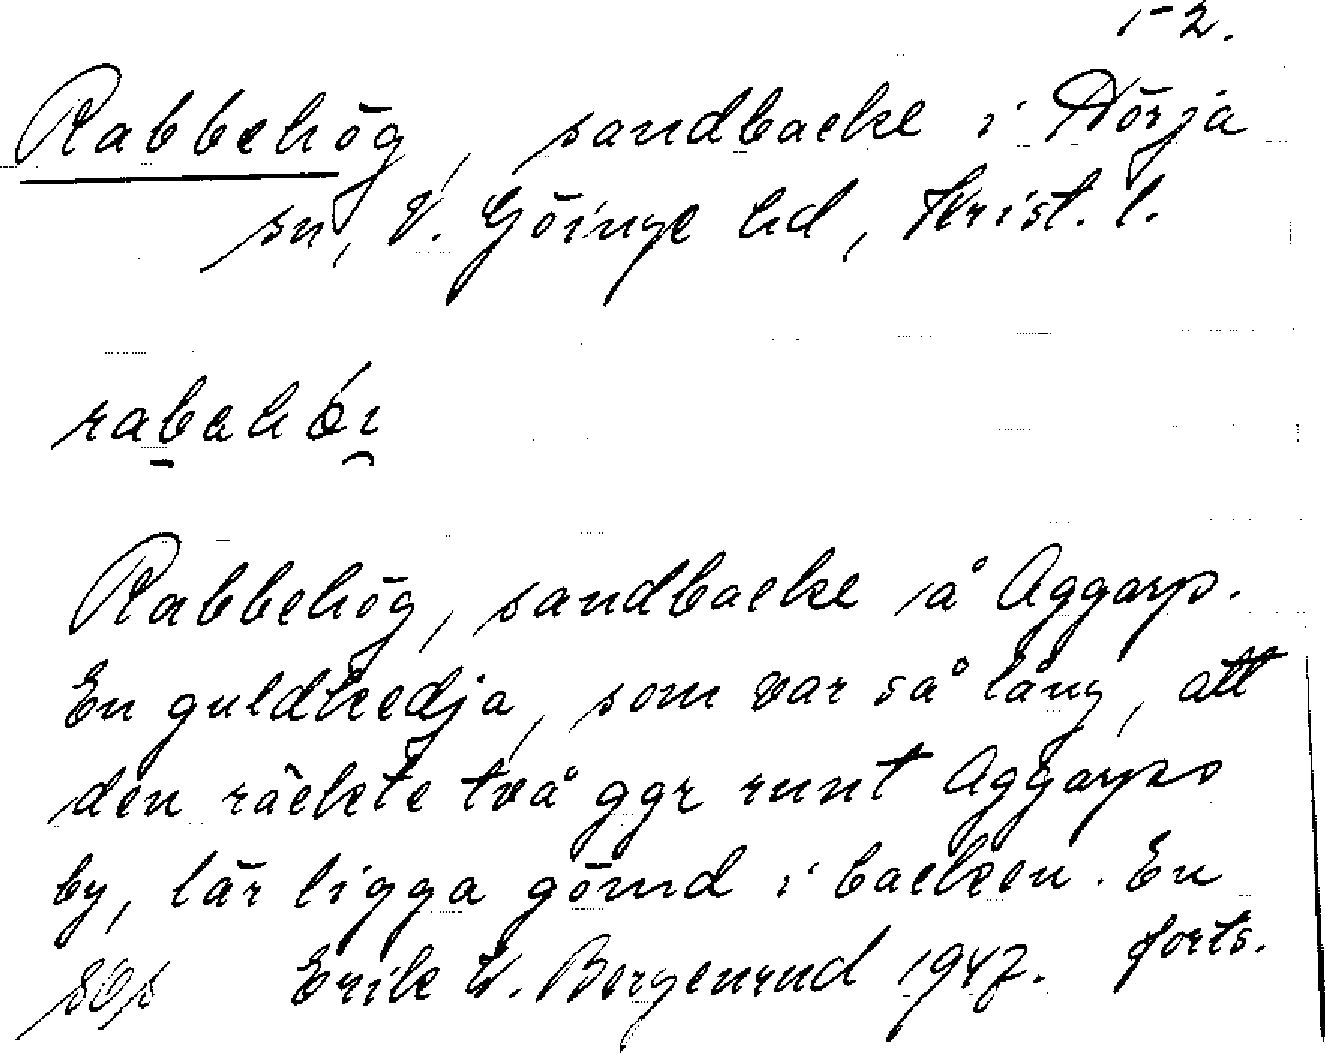 1-2.
Rabbehög, sandbacke i Nörja
sn, V. Göinge hd, Krist. l.
Rabbehög, sandbacke å Aggarp.
En guldkedja, som var så lång, att
den räckte två ggr runt Aggarps
by, lär ligga gömd i backen. En
forts.
Erik W. Bergenrud 1947.